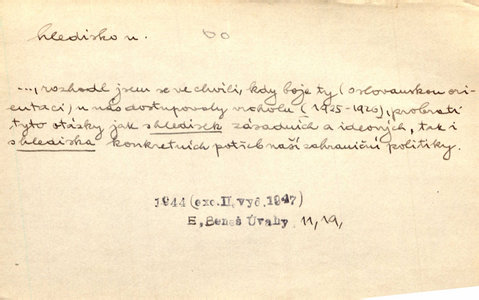 hledisko n. 60
..., rozhodl jsem se ve chvíli, kdy boje ty (o slovanskou ori-
entaci) u nás dostupovaly vrcholu (1925-1926), probrati
tyto otázky jak s hledisek zásadních a ideových, tak i
s hlediska konkretních potřeb naší zahraniční politiky.
1944 (exc. II. vyd. 1947)
E. Beneš Úvahy 11, 19,